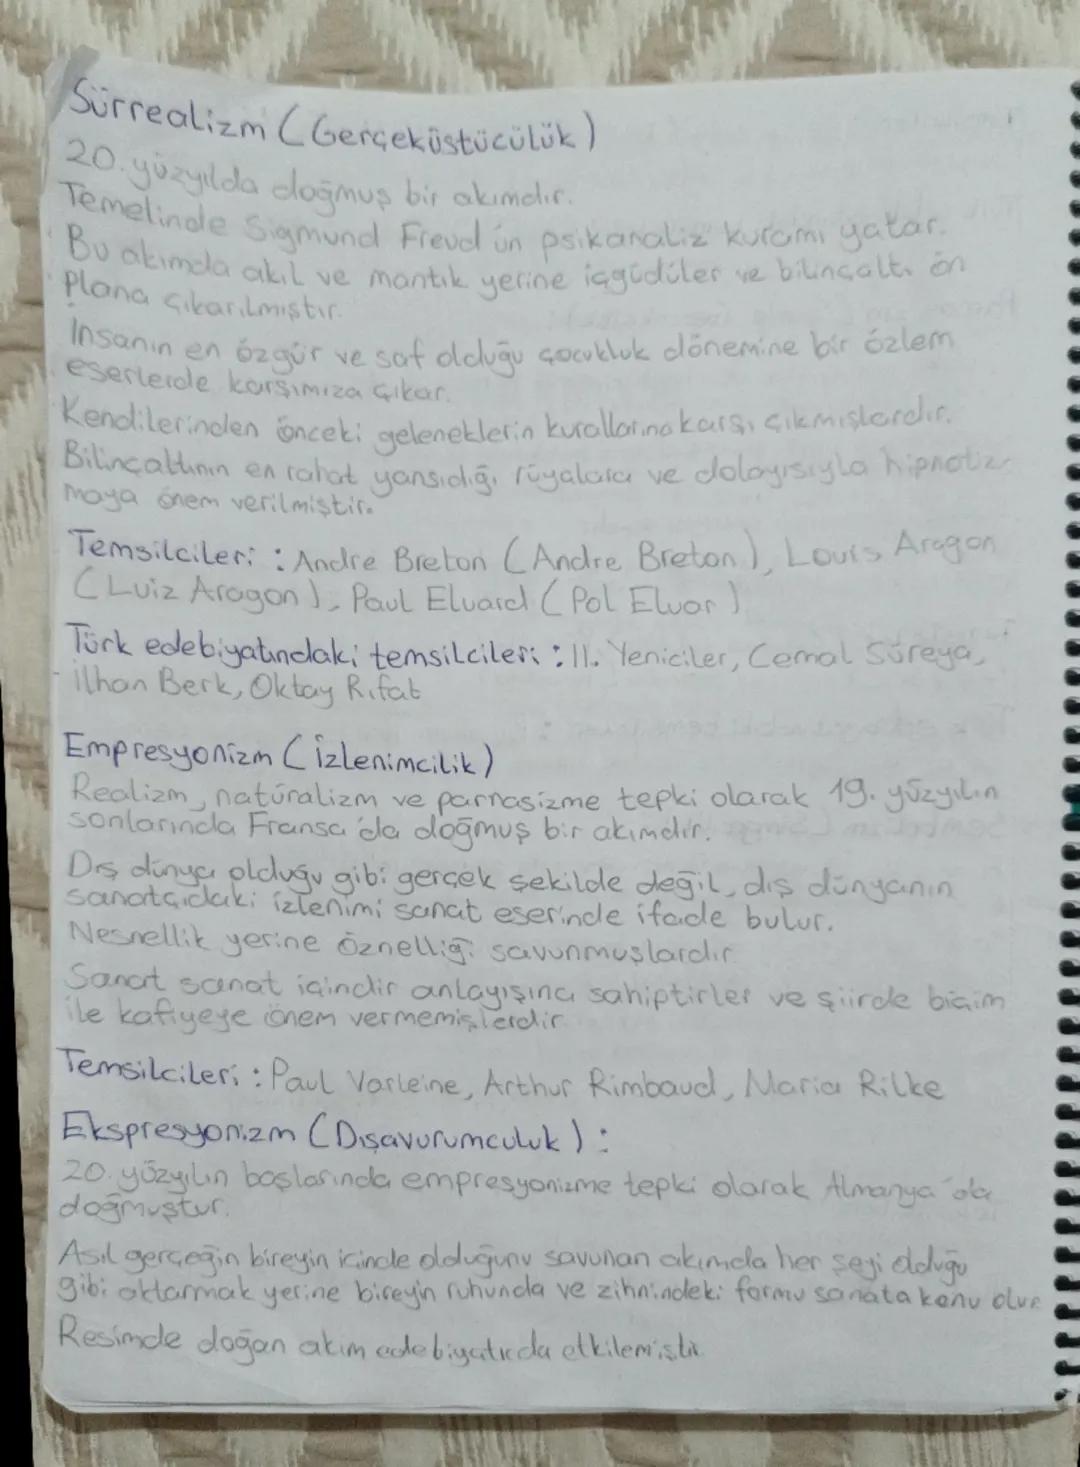 Sürrealizm (Gerçeküstücülük)
20. yüzyılda doğmuş bir akımdır.
Temelinde Sigmund Freud'ün psikanaliz kuramı yatar.
Bu akımda akıl ve mantık yerine içgüdüler ve bilinçaltı ön
Plana çıkarılmıştır.
İnsanın en özgür ve saf olduğu çocukluk dönemine bir özlem
eserlerde karşımıza çıkar.
Kendilerinden önceki geleneklerin kurallarına karşı çıkmışlardır.
Bilinçaltının en rahat yansıdığı rüyalara ve dolayısıyla hipnotiz
maya önem verilmiştir.
Temsilcileri : Andre Breton (Andre Breton), Louis Aragon
(Luiz Aragon), Paul Eluard (Pol Eluar)
Türk edebiyatındaki temsilcileri : II. Yeniciler, Cemal Süreya,
İlhan Berk, Oktay Rıfat
Empresyonizm (İzlenimcilik)
Realizm, natüralizm ve parnasizme tepki olarak 19. yüzyılın
sonlarında Fransa'da doğmuş bir akımdır.
Dış dünya olduğu gibi gerçek şekilde değil, dış dünyanın
sanatçıdaki izlenimi sanat eserinde ifade bulur.
Nesnellik yerine öznelliği savunmuşlardır.
Sanat sanat içindir anlayışına sahiptirler ve şiirde biçim
ile kafiyeye önem vermemişlerdir.
Temsilcileri : Paul Varleine, Arthur Rimbaud, Maria Rilke
Ekspresyonizm (Dışavurumculuk) :
20. yüzyılın başlarında empresyonizme tepki olarak Almanya'da
doğmuştur.
Asıl gerçeğin bireyin içinde olduğunu savunan akımda her şeyi olduğu
gibi aktarmak yerine bireyin ruhunda ve zihnindeki formu sanata konu olur
Resimde doğan akım edebiyatıda etkilemiştir